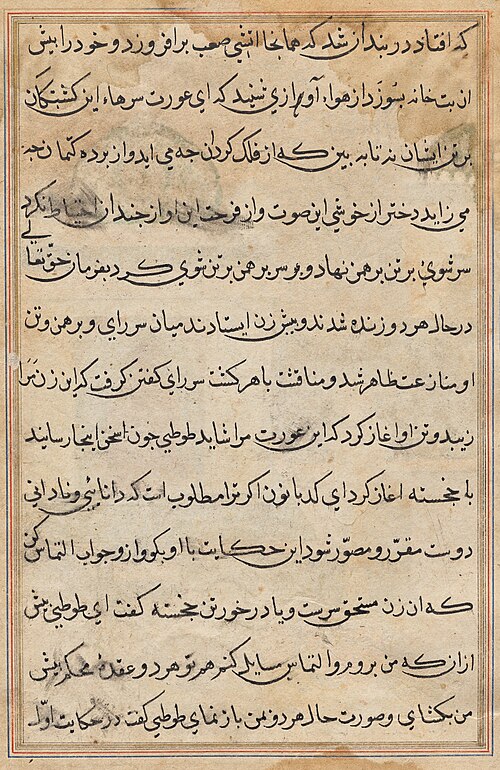 که افتاد در بندان شد که همانجا اتشی صعب برافروزد و خود را پیش
از بت خانه بسوزد از هواء آوازی شنید که ای عورت سرهاء این کشتکان
برتن ایشان نه تا به بین که از فلک کردان چه می اید و از برده کتمان چه
می زاید دختر از خوشی این صوت و از فرحت این اواز چندان احتیاط نکرد
سر شوی برتن برهمن نهاد و سر برهمن برتن شوی کرد بفرمان حق تعالی
درحال هردو زنده شدند و پیش زن ایستادند میان سر رای و برهمن و تن
او منازعت ظاهر شد و مناقشت باهر کشت سر رای کفتن کرفت که این زن مرا
زیبد و تن او اغاز کرد که این عورت مرا شاید طوطی چون سخن اینجا رسانید
با خجسته اغاز کرد ای کدبانو اکر ترا مطلوب است که دانایی و نادانی
دوست مقرر و مصور شود این حکایت با او بکو و از و جواب التماس کن
که ان زن مستحق سرست و یا درخور تن خجسته کفت ای طوطی پیش
ازان که من بروم و التماس سایل کنم هم تو هر دو عقده محکم پیش
من بکشای و صورت حال هردو بمن باز نمای طوطی کفت در حکایت اول